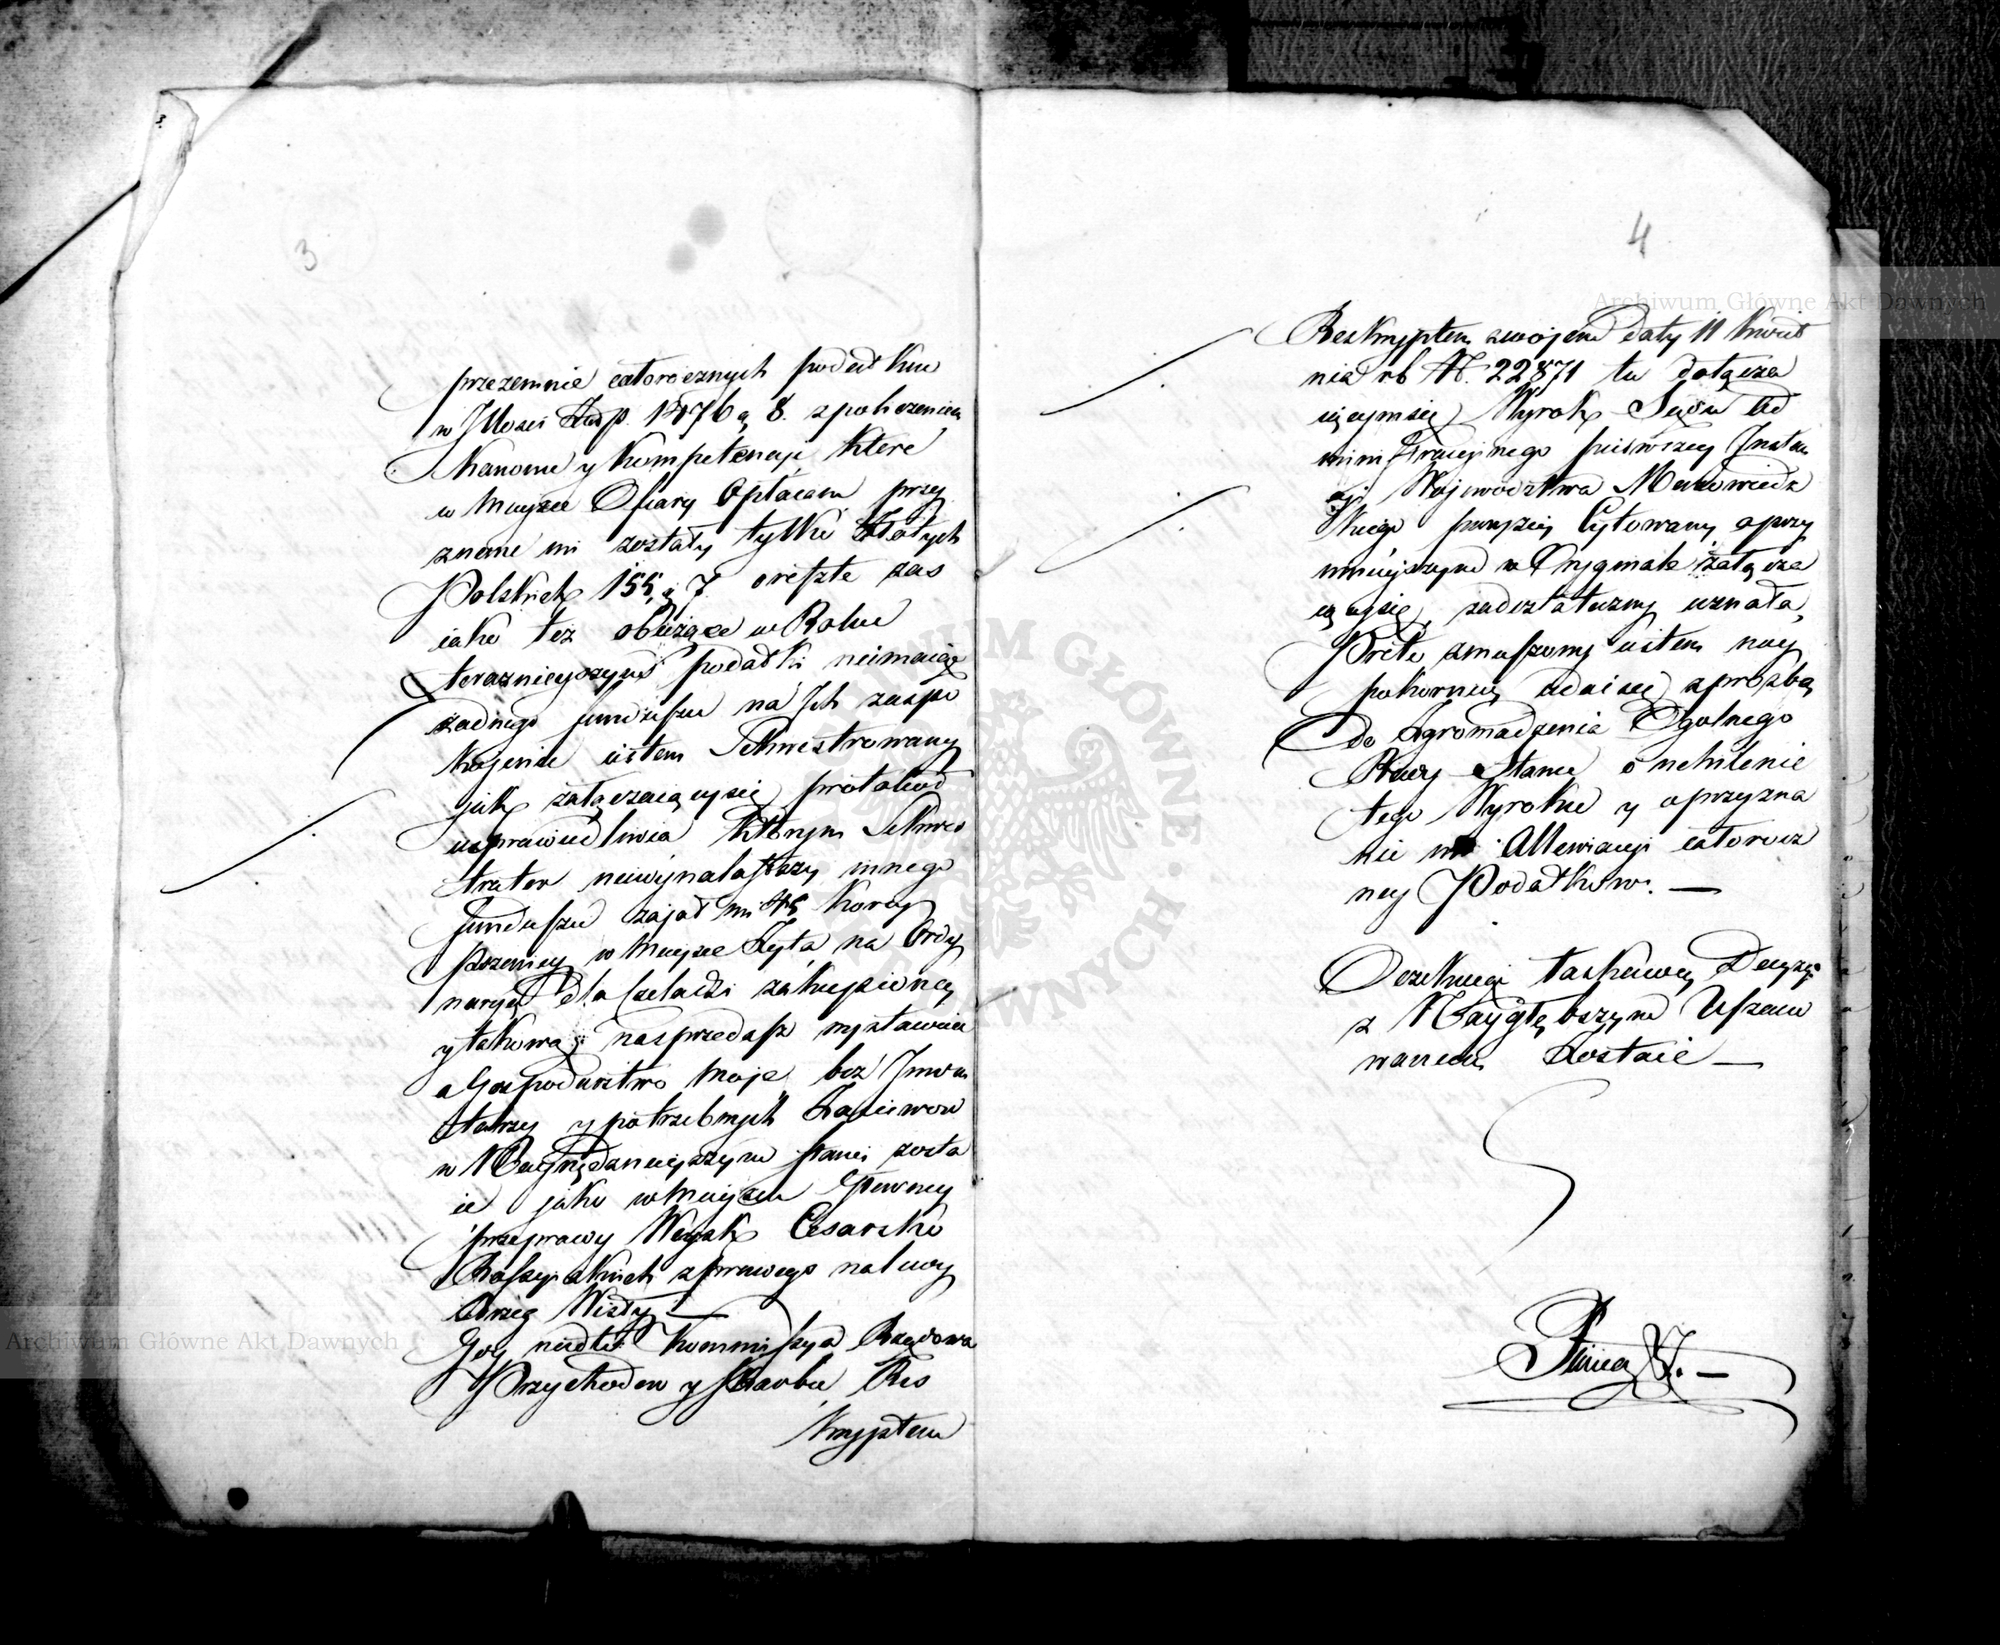 3
przezemnie całorocznych podatków
w Jlłości Złotp. 1476 g 8. z policzeniem
Kanonu y Kompetencji które
w Mieysce Ofiary Opłacam przy
znane mi zostały tylko Złotych
Polskich 155, g 7. oresztę zas
iako też obieżące w Roku
teraznieyszym podatki niemaiąc
żadnego funduszu na Jch zaspo
kojenie iestem Sekwestrowany
jak załączaiącysię protokoł
usprawiedliwia którym Sekwes
trator niewynalazłszy innego
funduszu zajął mi 45 korcy
Pszenicy w Mieysce Żyta na Ordy
naryą dla czeladzi zakupioney
y takową nasprzedaż wystawia
a Gospodarstwo Moje bez Jnwen
tarzy y potrzebnych Zasiewow
w Naynędznieyszym stanie zosta
ie jako w Mieyscu Główney
przeprawy Woysk Cesarsko
Rossyiskich z prawego na lewy
brzeg Wisły.
Gdy nadto Kommissya Rządowa
Przychodow y Skarbu Res
kryptem
4
Reskryptem swojem daty 11 Kwiet
nia rb N. 22871 tu dołącza
iącymsię Wyrok Sądu Ad
ministracyinego pierwszey Jnstan
cyi Woiewodztwa Mazowiec
kiego powyżey Cytowany a przy
ninieyszym w Oryginale załącza
iącysię, za dostateczny uznała,
Przeto zmuszony iestem nay
pokorniey udaisię z prozbą
Do Zgromadzenia Ogolnego
Rady Stanu o uchilenie
tego Wyroku y o przyzna
nie mi Allewiacyi całorocz
ney Podatkow. —
Oczekuiąc łaskawey Decyzyi
z Naygłębszym Uszano
waniem Zostaię —